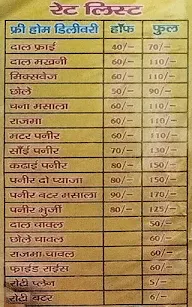 रेट लिस्ट
फ्री होम डिलीवरी हॉफ फुल
दाल फ्राई 40/- 70/-
दाल मखनी 60/- 110/-
मिक्सवेज 60/- 110/-
छोले 50/- 90/-
चना मसाला 60/- 110/-
राजमा 60/- 110/-
मटर पनीर 60/- 110/-
साँई पनीर 70/- 130/-
कढाई पनीर 80/- 150/-
पनीर दो प्याजा 80/- 150/-
पनीर बटर मसाला 90/- 170/-
पनीर भुर्जी 80/- 125/-
दाल चावल 50/-
छोले चावल 60/-
राजमा चावल 60/-
फ्राईड राईस 60/-
रोटी प्लेन 5/-
रोटी बटर 6/-